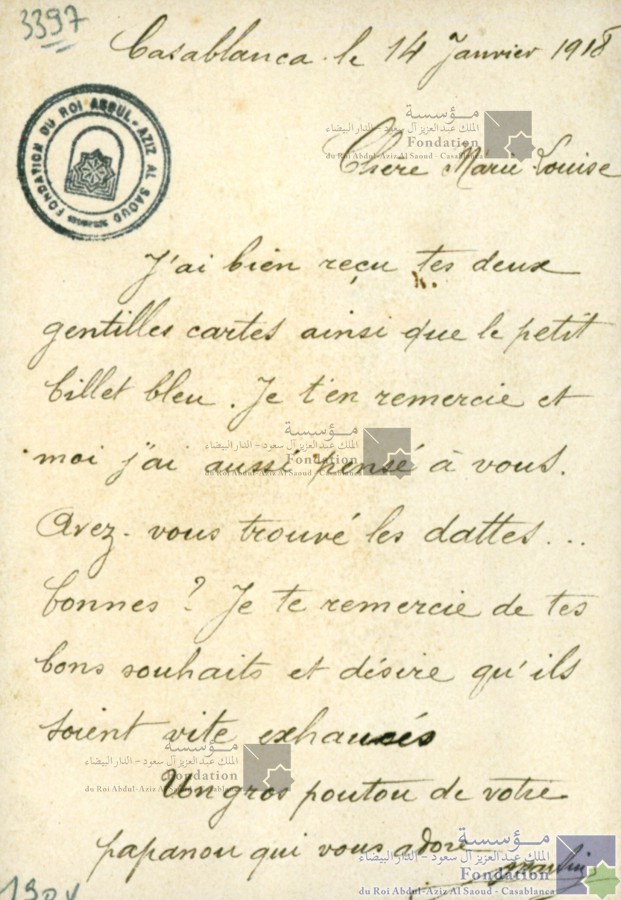 3397
Casablanca. le 14 Janvier 1918
FONDATION DU ROI ABDUL-AZIZ AL SAOUD
مؤسسة
الملك عبدالعزيز آل سعود - الدار البيضاء
Fondation
du Roi Abdul-Aziz Al Saoud - Casablanca
Chère Marie-Louise
J'ai bien reçu tes deux
gentilles cartes ainsi que le petit
billet bleu. Je t'en remercie et
مؤسسة
الملك عبدالعزيز آل سعود - الدار البيضاء
Fondation
du Roi Abdul-Aziz Al Saoud - Casablanca
moi j'ai aussi pensé à vous.
Avez-vous trouvé les dattes...
bonnes? Je te remercie de tes
bons souhaits et désire qu'ils
soient vite exhaucés
مؤسسة
الملك عبدالعزيز آل سعود - الدار البيضاء
Fondation
du Roi Abdul-Aziz Al Saoud - Casablanca
Un gros poutou de votre
papanou qui vous adore
مؤسسة
الملك عبدالعزيز آل سعود - الدار البيضاء
Fondation
du Roi Abdul-Aziz Al Saoud - Casablanca